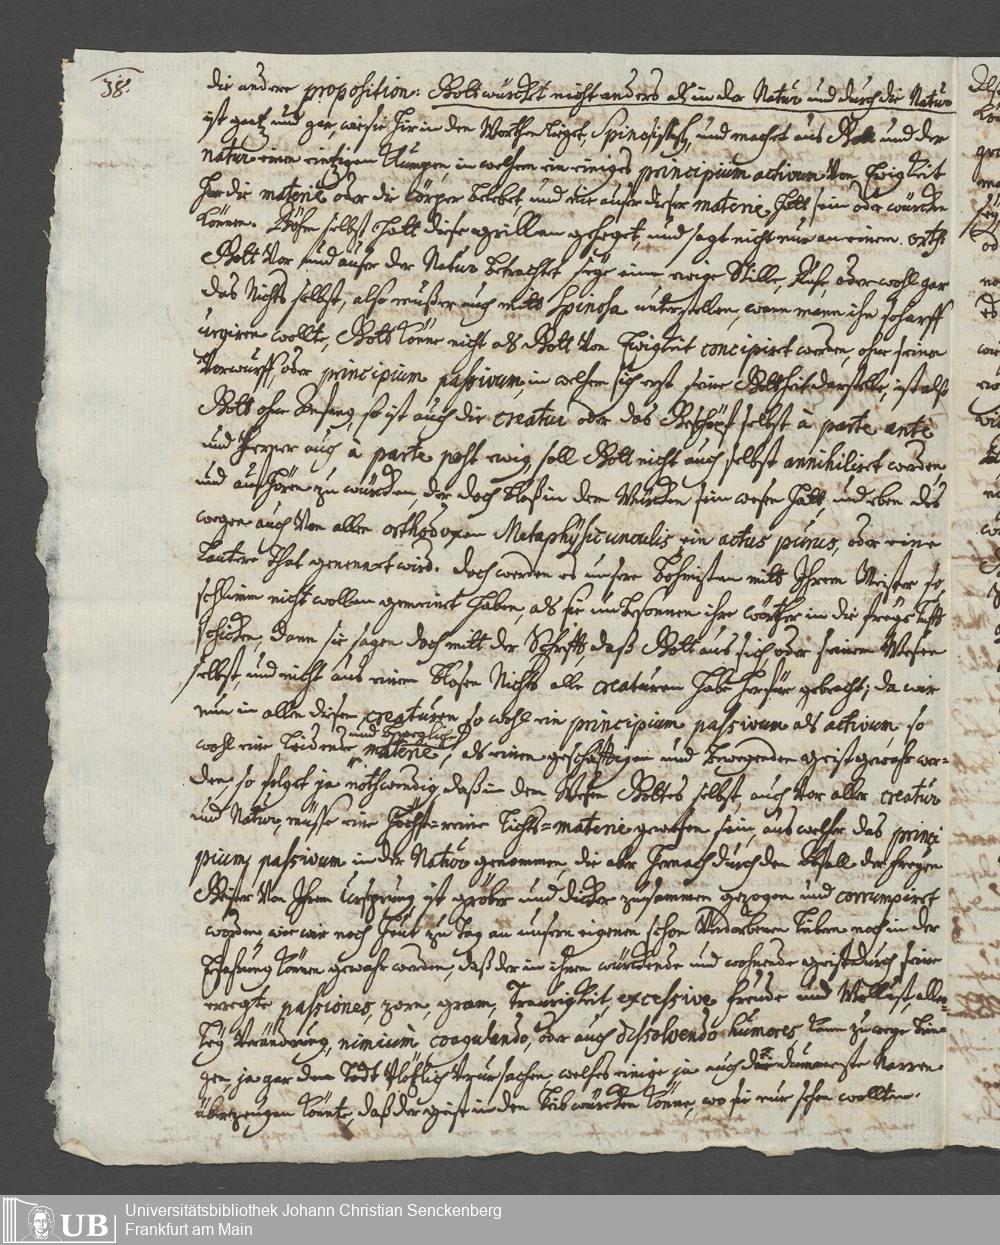 38.
die andere proposition: Gott würcket nicht anders als in der Natur und durch die Natur
ist gantz und gar, wie sie hir in den Worthen lieget, Spinosistisch, und machet aus Gott und der
natur einen eintzigen Klumpen, in welchem ein einiges principium activum von Ewigkeit
her die materie oder die Cörper belebet, und nie auser dieser materie hatt sein oder würcken
können. Böhm selbst hatt diese grillen geheget, und sagt nicht nur an einem orth
Gott vor und auser der Natur betrachtet seye eine ewige Stille, Ruhe, oder wohl gar
das Nichts selbst, also muß er auch mitt Spinosa unterstellen, wann mann ihn scharff
urgiren wollte, Gott könne nicht als Gott von Ewigkeit concipiret werden, ohne seinen
Vorwurff, oder principium passivum, in welchem sich erst seine Gottheit darstelle, ist also
Gott ohne Anfang, so ist auch die creatur oder das Geschöpf selbst à parte ante
und ferner auch à parte post ewig, soll Gott nicht auch selbst annihiliret werden
und aufhören zu würcken, der doch bloß in dem Würcken sein wesen hatt, und eben des
wegen auch von allen orthodoxen Metaphysicunculis ein actus purus, oder eine
lautere That genennet wird. doch werden es unsere Böhmisten mitt Ihrem Meister so
schlimm nicht wollen gemeinet haben, als sie unbesonnen ihre wörther in die freye lufft
schicken, dann sie sagen doch mitt der Schrifft, daß Gott aus sich oder seinem Wesen
selbst, und nicht aus einem blosen Nichts alle creaturen habe herfür gebracht; da wir
nun in allen diesen creaturen so wohl ein principium passivum als activum, so
und bewegliche
wohl eine leidende materie, als einen geschäfftigen und bewegenden geist gewahr wer-
den, so folget ja nothwendig, daß in dem Wesen Gottes selbst, auch vor aller creatur
und Natur, müsse eine höchst-reine lichts-materie gewesen sein, aus welcher das princi
pium passivum in der Natur genommen, die aber hernach durch den Abfall der freyen
Geister von Ihrem Ursprung ist gröber und dicker zusammen gezogen und corrumpiret
worden, wie wir noch heut zu tag an unsern eigenen schon verdorbenen leibern noch in der
Erfahrung können gewahr werden, daß der in ihnen würckende und wohnende geist durch seine
erregte passiones, zorn, gram, Traurigkeit, excessive freude und Wollust, aller-
ley Veränderung, nimium coagulando, oder auch dissolvendo humores, kann zu wege brin-
gen, ja gar den Todt plötzlich verursachen, welches einige ja auch die dummeste Narren
überzeugen könnte, daß der geist in den leib würcken könne, wo sie nur sehen wollten.
Universitätsbibliothek Johann Christian Senckenberg
Frankfurt am Main
UB